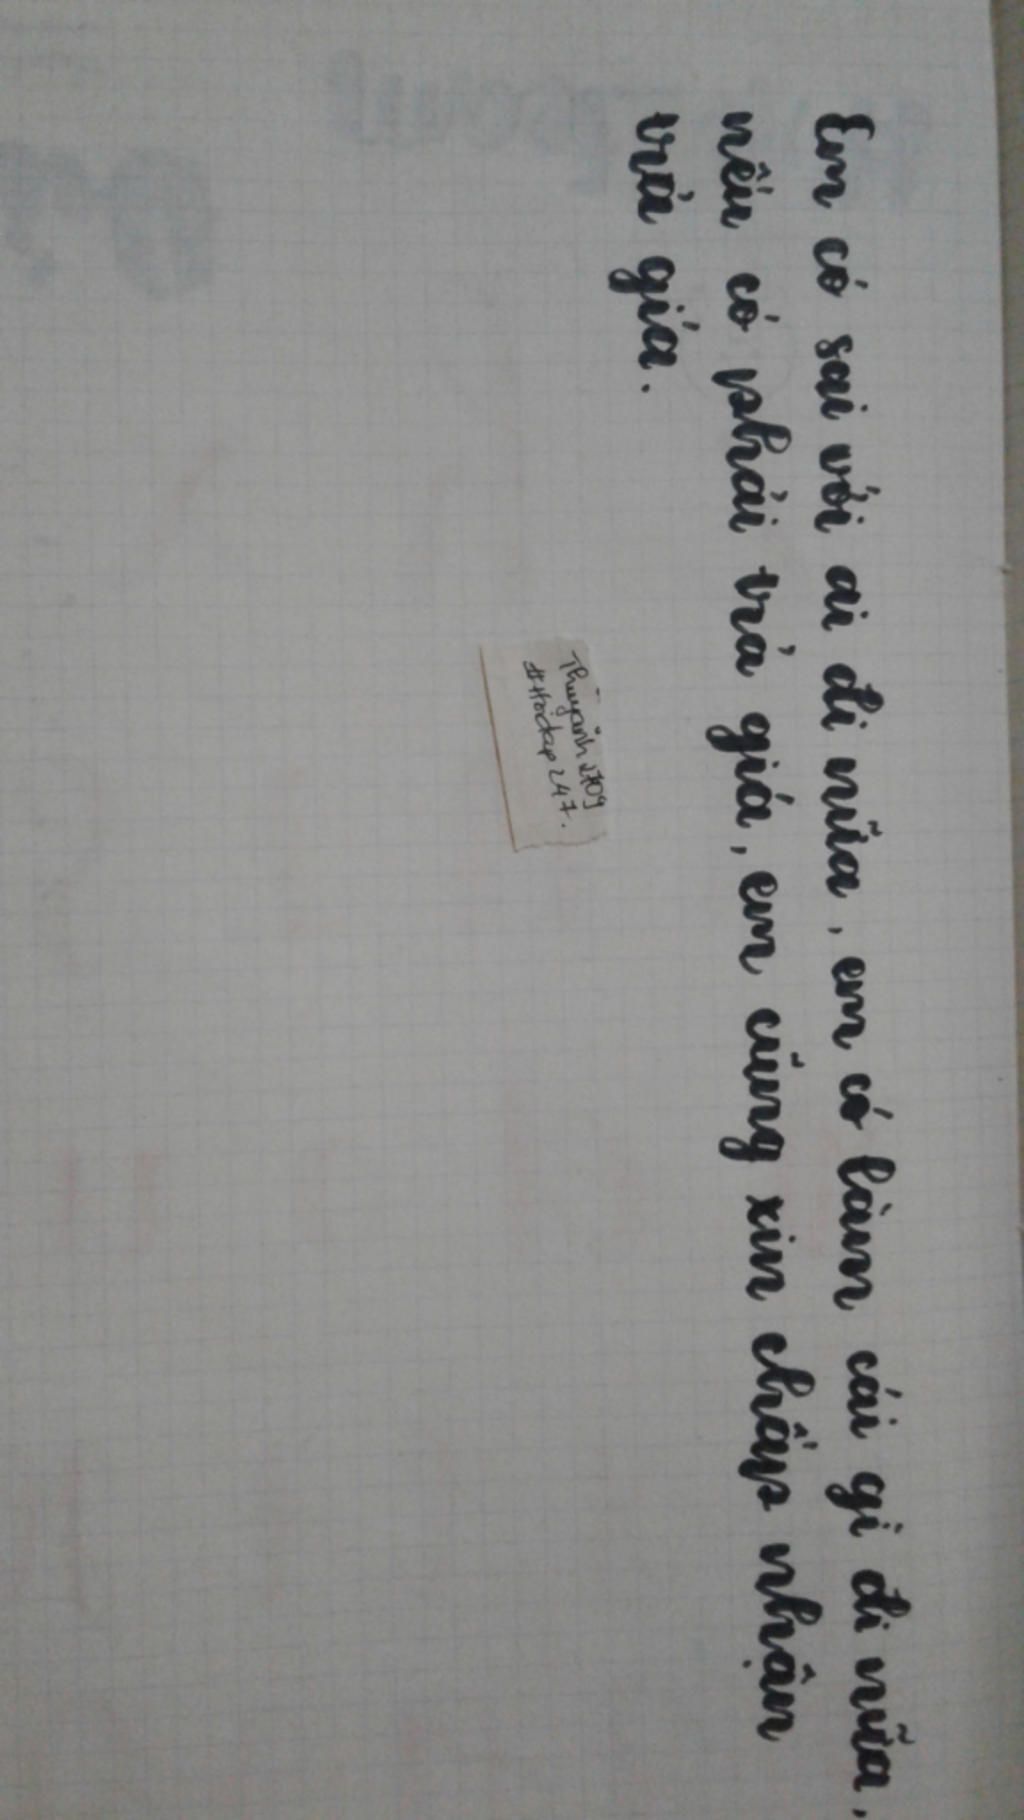 Em có sai với ai đi nữa, em có làm cái gì đi nữa,
nếu có phải trả giá, em cũng xin chấp nhận
trả giá.
#Hoidap247.